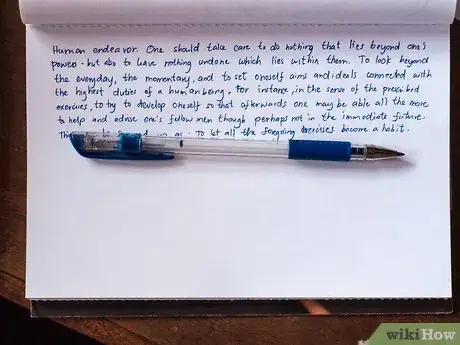 Human endeavor. One should take care to do nothing that lies beyond one's
powers - but also to leave nothing undone which lies within them. To look beyond
the everyday, the momentary, and to set oneself aims and ideals connected with
the highest duties of a human being. For instance, in the sense of the prescribed
exercises, to try to develop oneself so that afterwards one may be able all the more
to help and advise one's fellow men though perhaps not in the immediate future.
as: To let all the foregoing exercises become a habit.
wikiHow